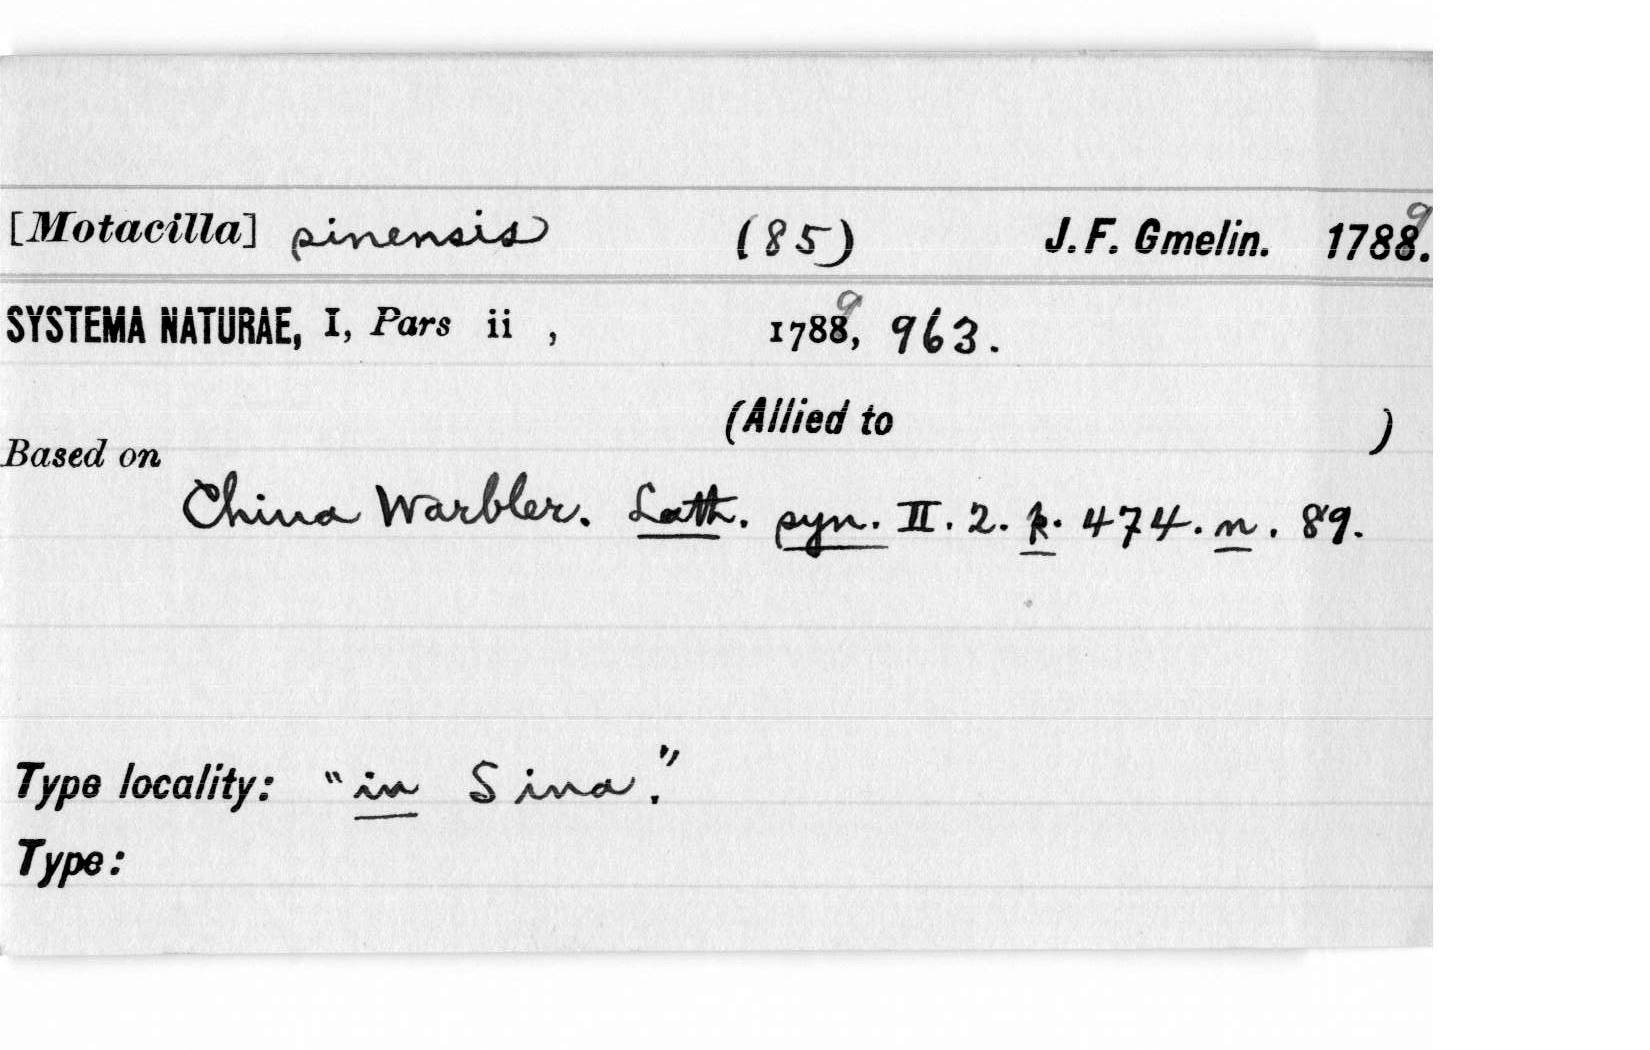 [Motacilla] pinensis (85) J. F. Gmelin. 17889.
SYSTEMA NATURAE, I, Pars ii , 17889, 963.
(Allied to )
Based on
China Warbler. Lath. syn. II. 2. p. 474. n. 89.
Type locality: "in Sina."
Type: